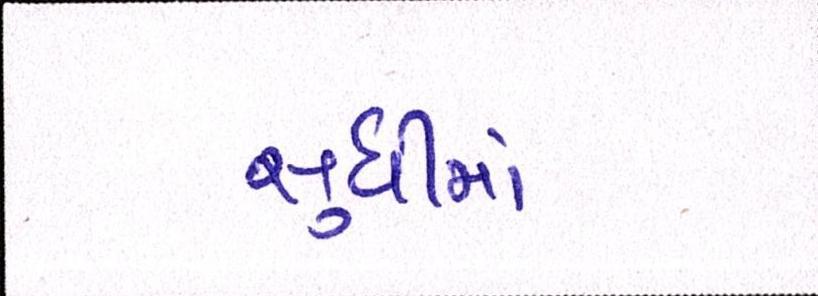 સુધીમાં